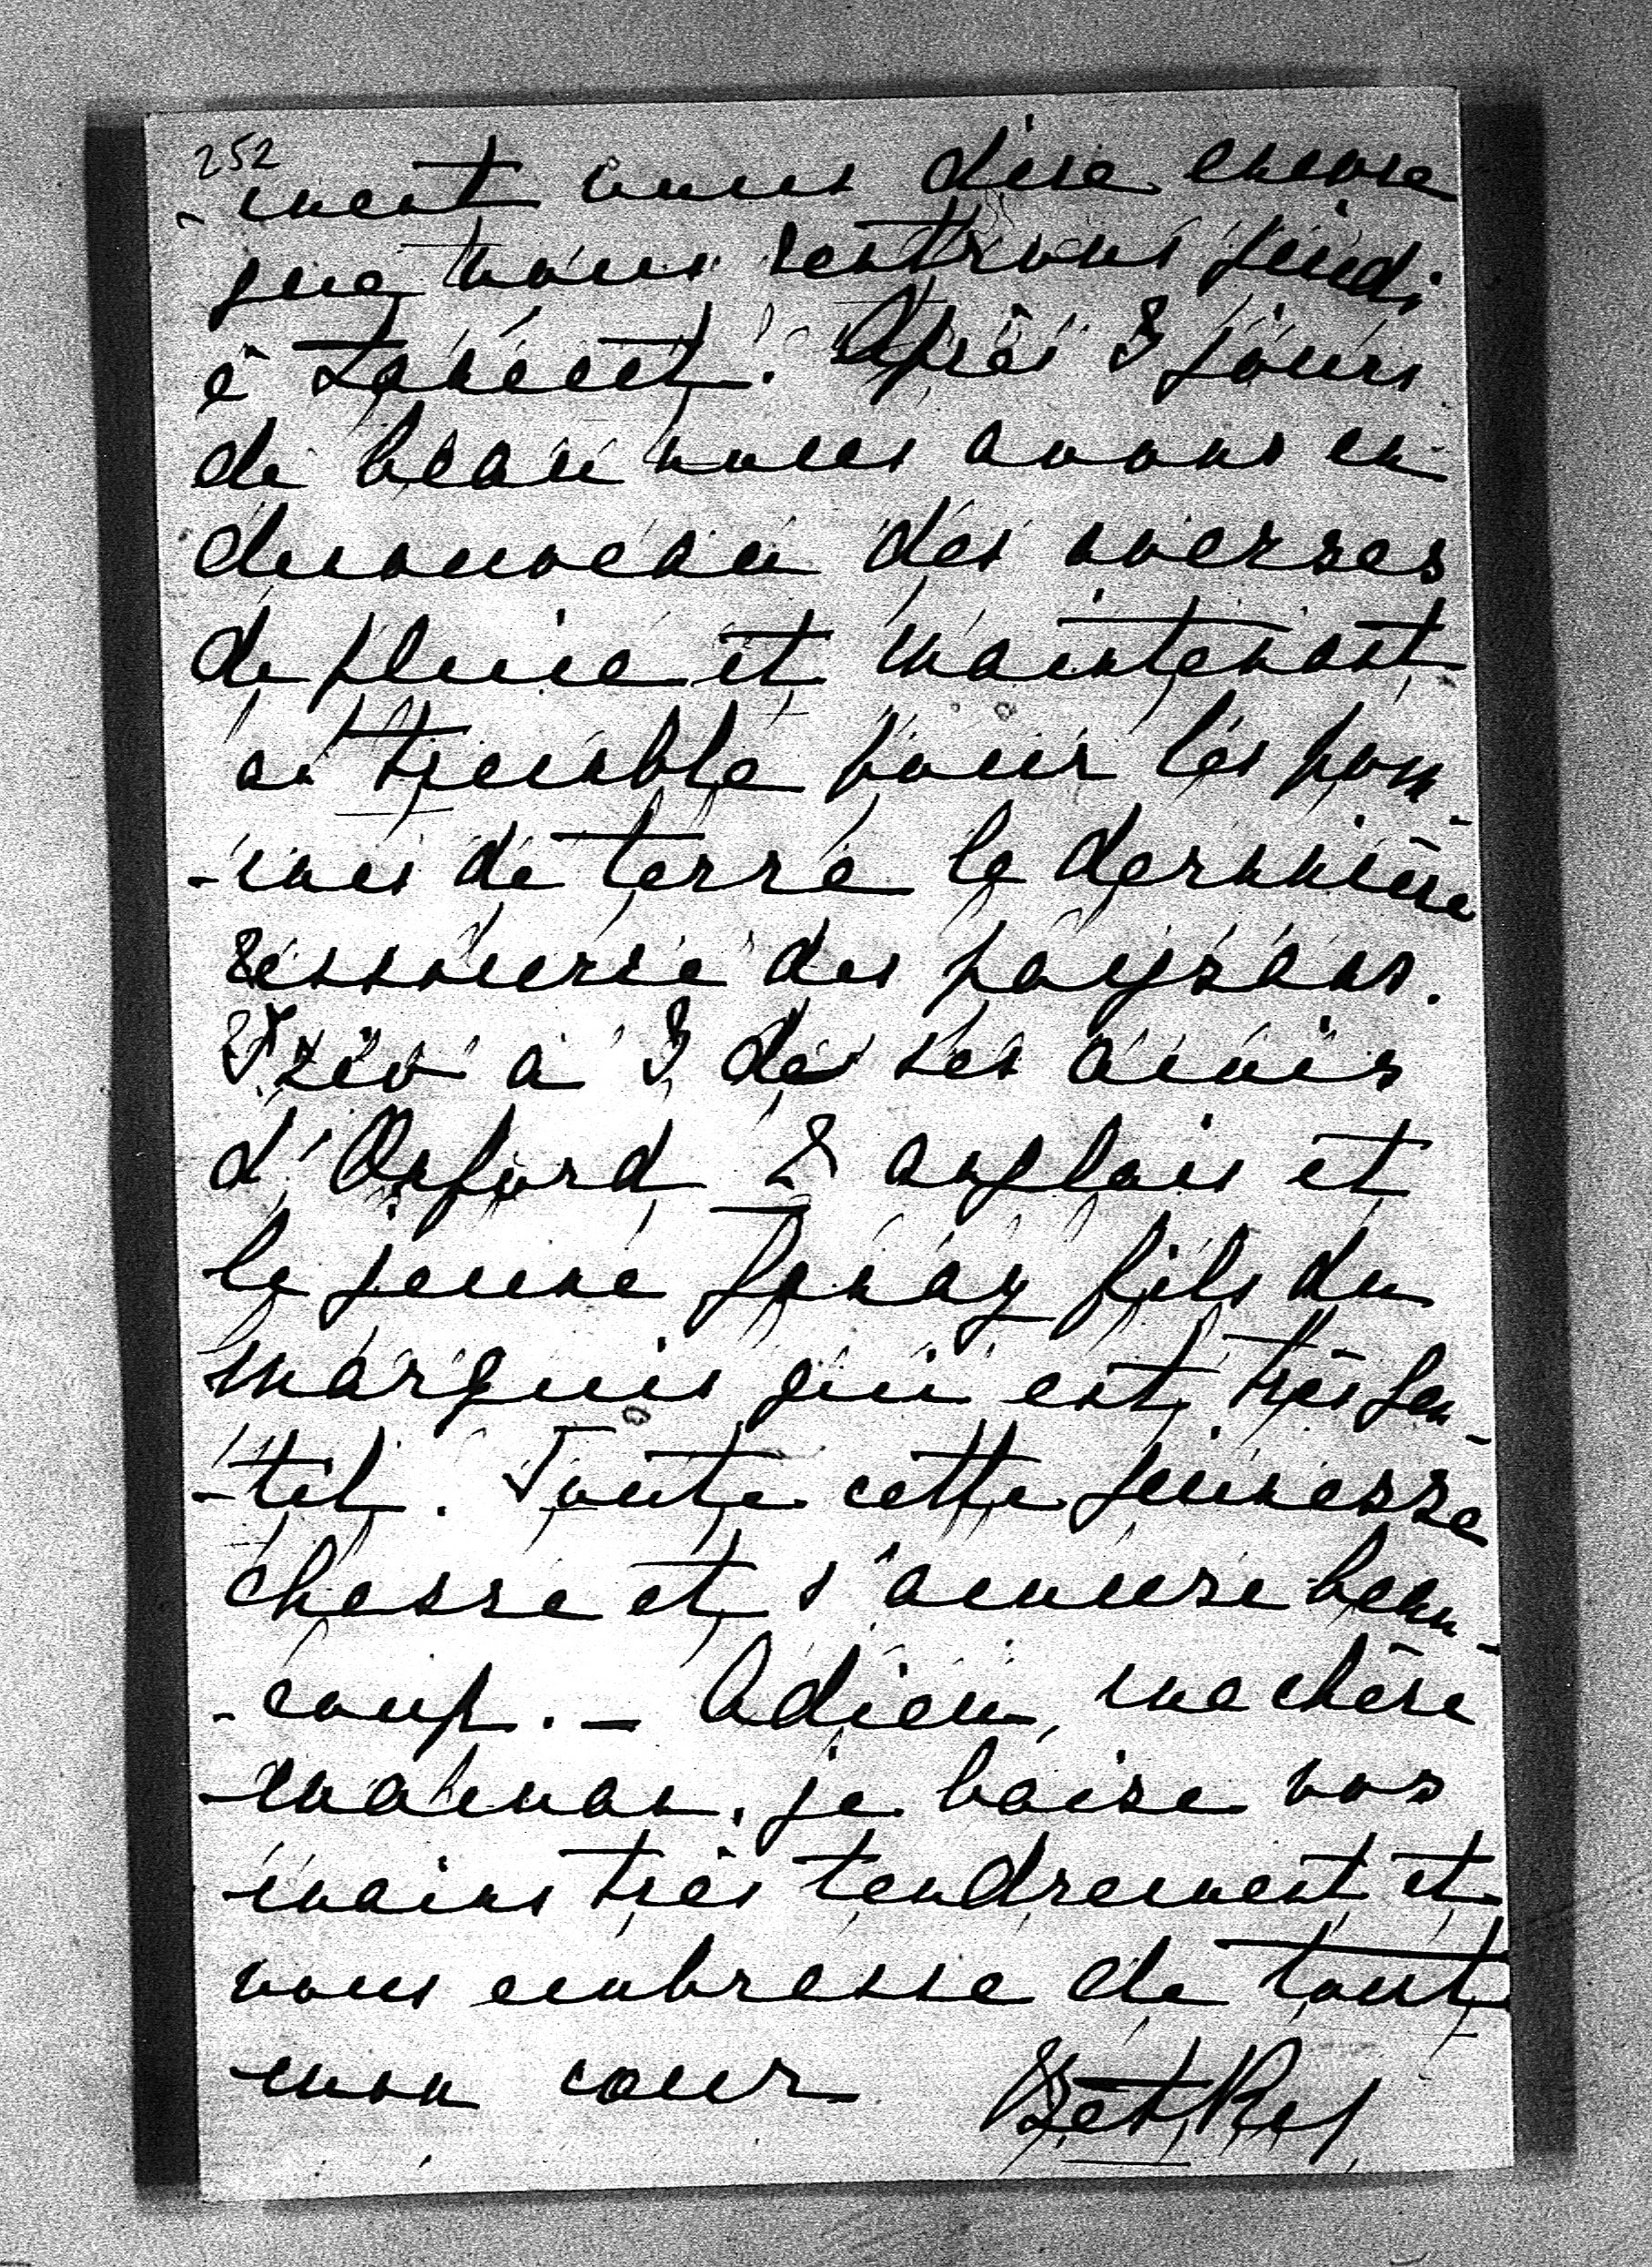 252
-ment vous dire encore
que nous rentrons jeudi
à Łańcut. Après 3 jours
de beau nous avons eu
denouveau des averses
de pluie et maintenant
on tremble pour les pom-
-mes de terre la dernnière
ressource des paysans.
a 3 de ses amis
d'Oxford 2 anglais et
le jeune fils du
marquis qui est très gen-
-til. Toute cette jeunesse
chasse et s'amuse beau-
-coup. — Adieu, ma chère
maman, je baise vos
mains très tendrement et
vous embrasse de tout
mon cœur Bet Rof